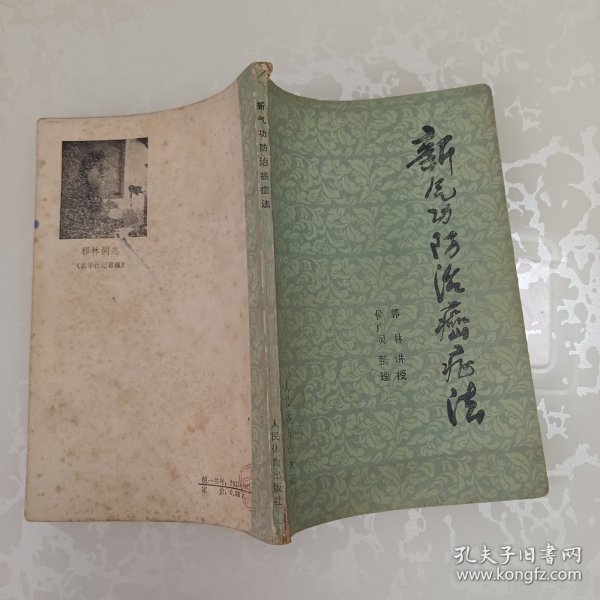 新气功防治癌症法
郭林 讲授
人民体育出版社
新气功防治癌症法
人民体育出版社
郭林同志
(新华社记者摄)
统一书号:
定价:0.38
孔夫子旧书网
www.kongfz.com